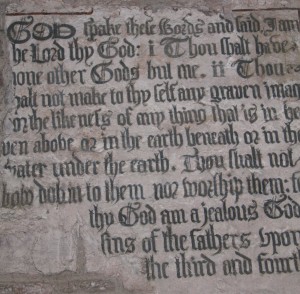 GOD spake these Words and said, I am
he Lord thy God: i Thou shalt have
none other Gods but me. ii Thou
halt not make to thy self any graven imag
or the likenets of any thing that is in he
ven above, or in the earth beneath or in th
water under the earth. Thou shalt not
bow down to them nor worship them: f
thy God am a jealous God
sins of the fathers vpon
the third and fourt